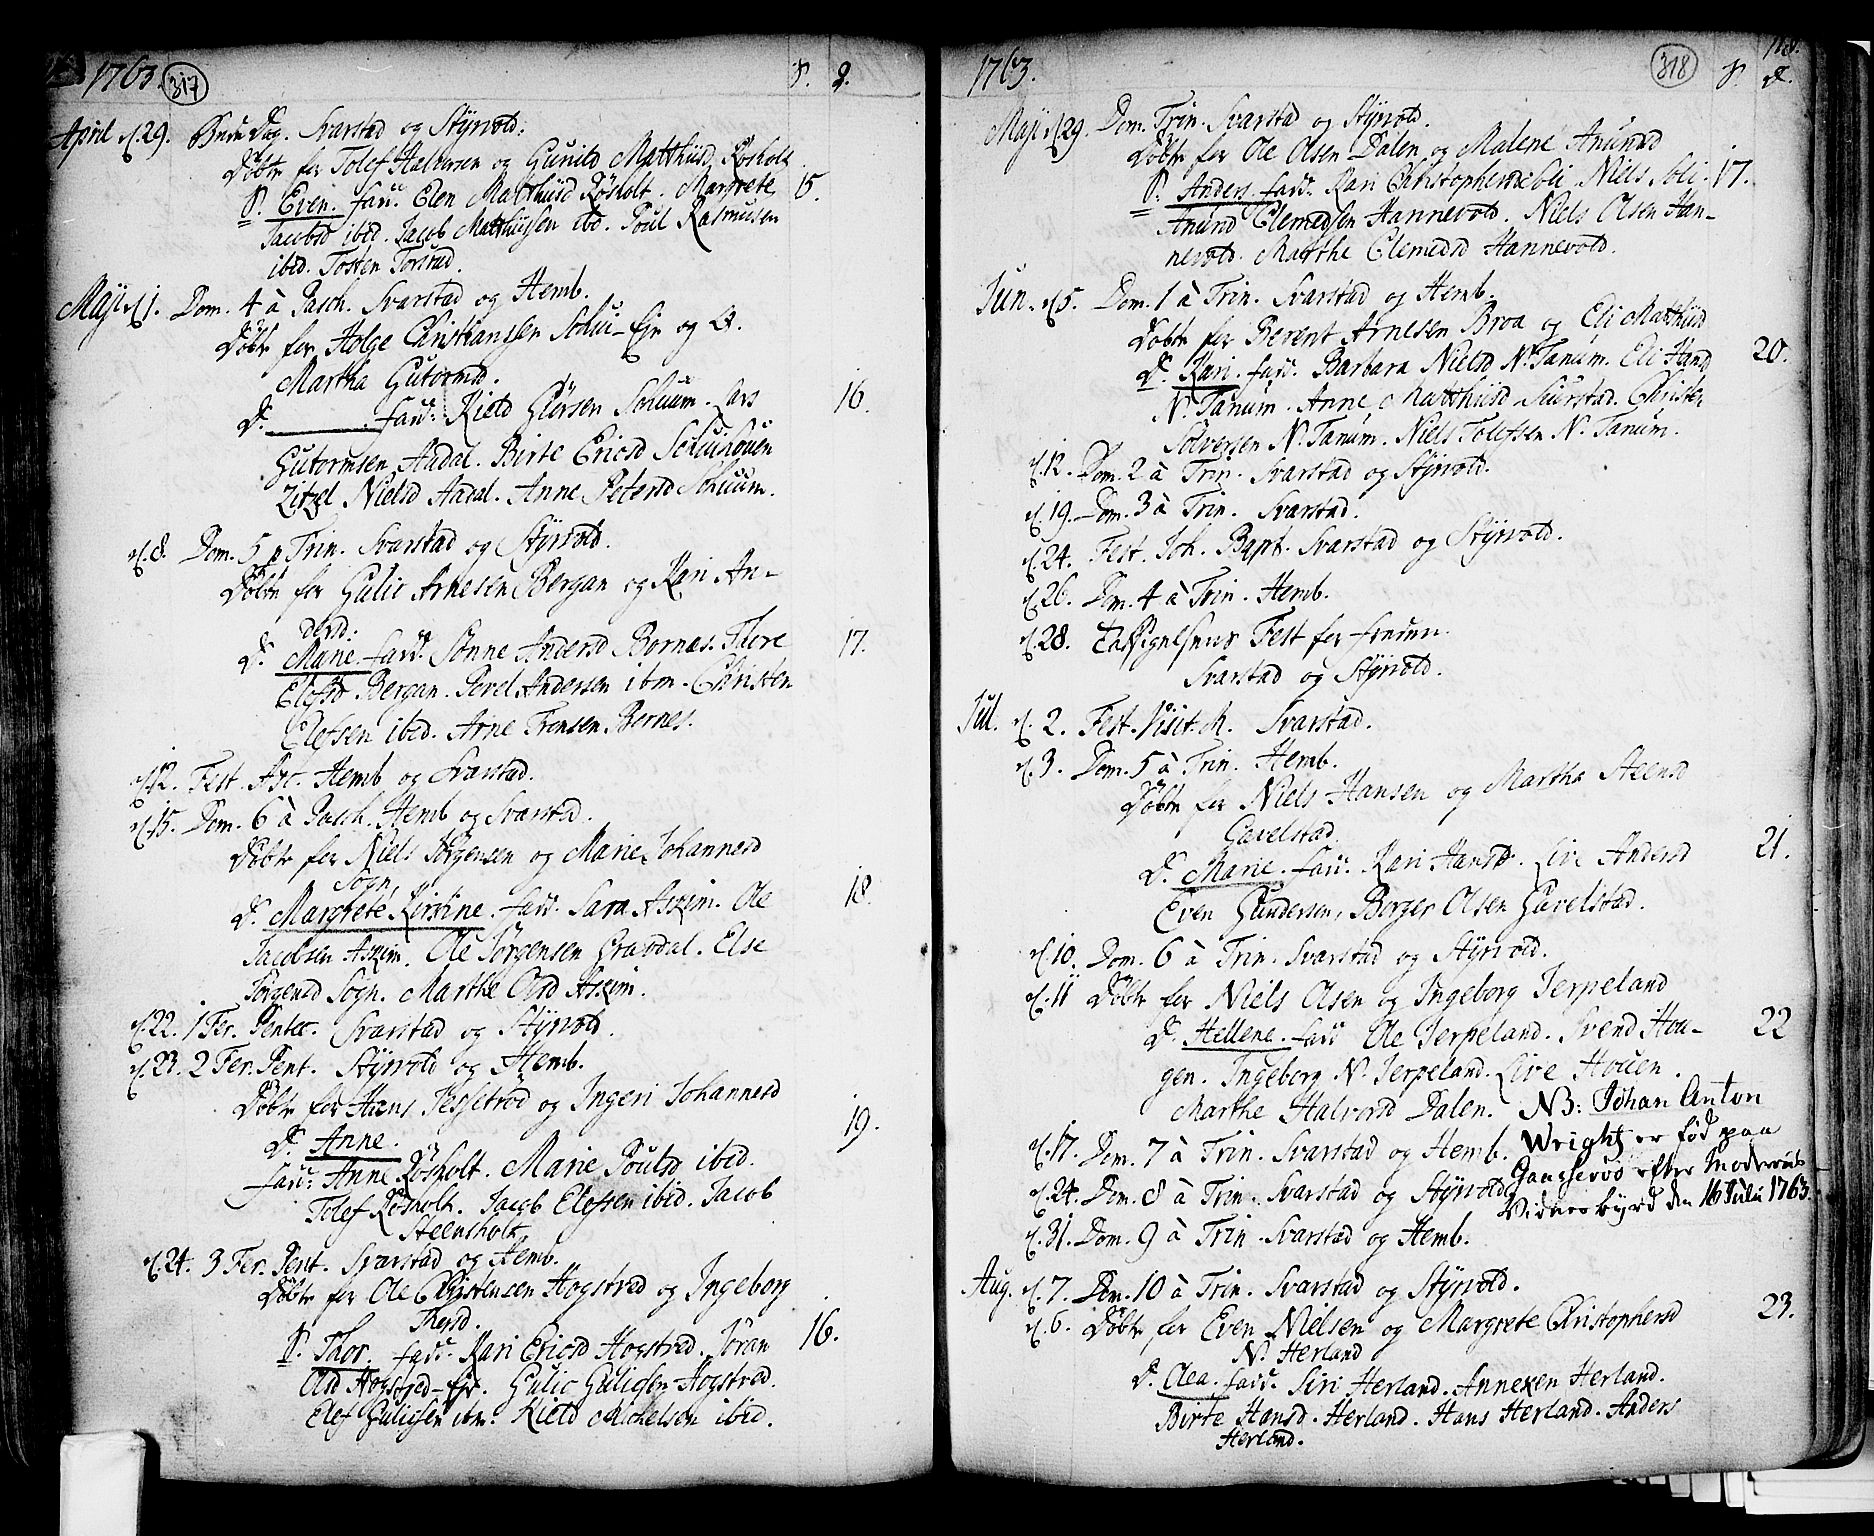 1763. 317 S. D.
April d. 29. Bede Dag. Svarstad og Styrvold.
Døbte for Tolef Halversen og Gunild Matthiisd Røsholt
S. Even. fad: Elen Matthiisd Røsholt. Margrete 15.
Jacobsd ibid. Jacob Matthissen ibid. Poul Rasmusen
ibid. Tosten Torsrud.
Maji d. 1. Dom. 4 à Pasch. Svarstad og Hemb.
Døbte for Holge Christiansen Schuu-Eje og
Martha Gutormsd.
D. fad: Kield Giørsen Schuum. Lars 16.
Gutormsen Aadal. Birte Ericsd
Zitzel Nielsd Aadal. Anne Petersd Schuum.
d. 8. Dom. 5 p Trin. Svarstad og Styrvold.
Døbte for Gulic Arnesen Bergan og Kari An-
dersd:
D. Marie. fadd. Sønne Andersd Bornas. Thore 17.
Elefsd Bergan. Povel Andersen ibm. Christen
Elefsen ibid. Arne Bernes.
d. 12. Fest. Asc. Hemb og Svarstad.
d. 15. Dom. 6 à Pasch. Hemb og Svarstd.
Døbte for Niels Jørgensen og Marie Johannesd
Sogn,
D. Margrete Kirstine. fadd. Sara Askim. Ole 18.
Jacobsen Askim. Ole Jørgensen Gravdal. Else
Jørgensd Sogn. Marthe Olsd Askim.
d. 22. 1 Fer. Pentec. Svarstad og Styrvold.
d. 23. 2 Fer. Pent. Styrvold og Hemb.
Døbte for Hans Jessetrød og Ingeri Johannesd
D. Anne. 19.
fadd: Anne Røsholt. Marie Poulsd ibid.
Tolef Røsholt. Jacob Elefsen ibid. Jacob
Steensholt
d. 24. 3 Fer. Pent. Svarstad og Hemb.
Døbte for Ole Christensen Hogstred og Ingeborg
Thorsd.
S. Thor. fadd. Kari Ericsd Hogstred. Jøran 16.
Olsd Hogstred-Eje. Gulic Gulicsen Hogstred.
Elef Gulicsen ibm. Kield Michelsen ibid.
1763. 318 S. D.
Maji d. 29. Dom. Trin. Svarstad og Styrvold.
Døbte for Ole Olsen Dalen og Malene Anundsd
S. Anders. fadd. Kari Christophersd Soli. Niels Soli. 17.
Anund Clemedsen Hannevold. Niels Olsen Han-
nevold. Marthe Clemedsd Hannevold.
Jun. d. 5. Dom. 1 à Trin. Svarstad og Hemb.
Døbte for Berent Arnesen Broa og Eli Matthiisd
D. Kari. fadd. Barbara Nielsd N. Tanum. Eli Hansd 20.
N. Tanum. Anne Matthiisd Christen
Solversen N. Tanum. Niels Tolefsen N. Tanum.
d. 12. Dom. 2 à Trin. Svarstad og Styrvold.
d. 19. Dom. 3 à Trin. Svarstad.
d. 24. Fest. Joh. Bapt. Svarstad og Styrvold.
d. 26. Dom. 4 à Trin. Hemb.
d. 28. Taksigelses Fest for freden.
Svarstad og Styrvold.
Jul. d. 2. Fest. Visit. M. Svarstad.
d. 3. Dom. 5 à Trin. Hemb.
Døbte for Niels Hansen og Martha Steensd
Gavelstad
D. Marie. fadd. Kari Hansd. Live Andersd 21.
Even Gundersen, Borger Olsen Gavelstad.
d. 10. Dom. 6 à Trin. Svarstad og Styrvold.
d. 11 Døbte for Niels Olsen og Ingeborg Jerpeland
D. Hellene. fadd Ole Jerpeland. Svend Hou- 22
gen. Ingeborg N. Jerpeland. Live Houen.
Marthe Halvorsd Dalen. NB: Johan Anton
d. 17. Dom. 7 à Trin. Svarstad og Hemb. Wright er fød paa
d. 24. Dom. 8 à Trin. Svarstad og Styrvold. Gaaserød efter Moderens
Vidnesbyrd den 16 Juli 1763.
d. 31. Dom. 9 à Trin. Svarstad og Hemb.
Aug. d. 7. Dom. 10 à Trin. Svarstad og Styrvold.
d. 6. Døbte for Even Nielsen og Margrete Christophersd 23.
N. Herland
D. Olea. fadd. Siri Herland. Annexen Herland.
Birte Hansd. Herland. Hans Herland. Anders
Herland.